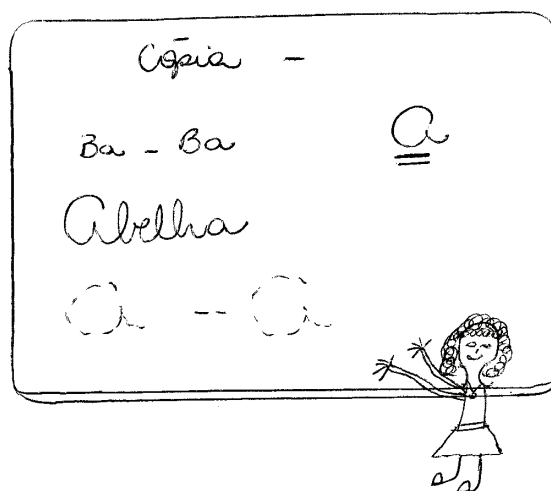 Cópia -
Ba - Ba a
Abelha
a -- a